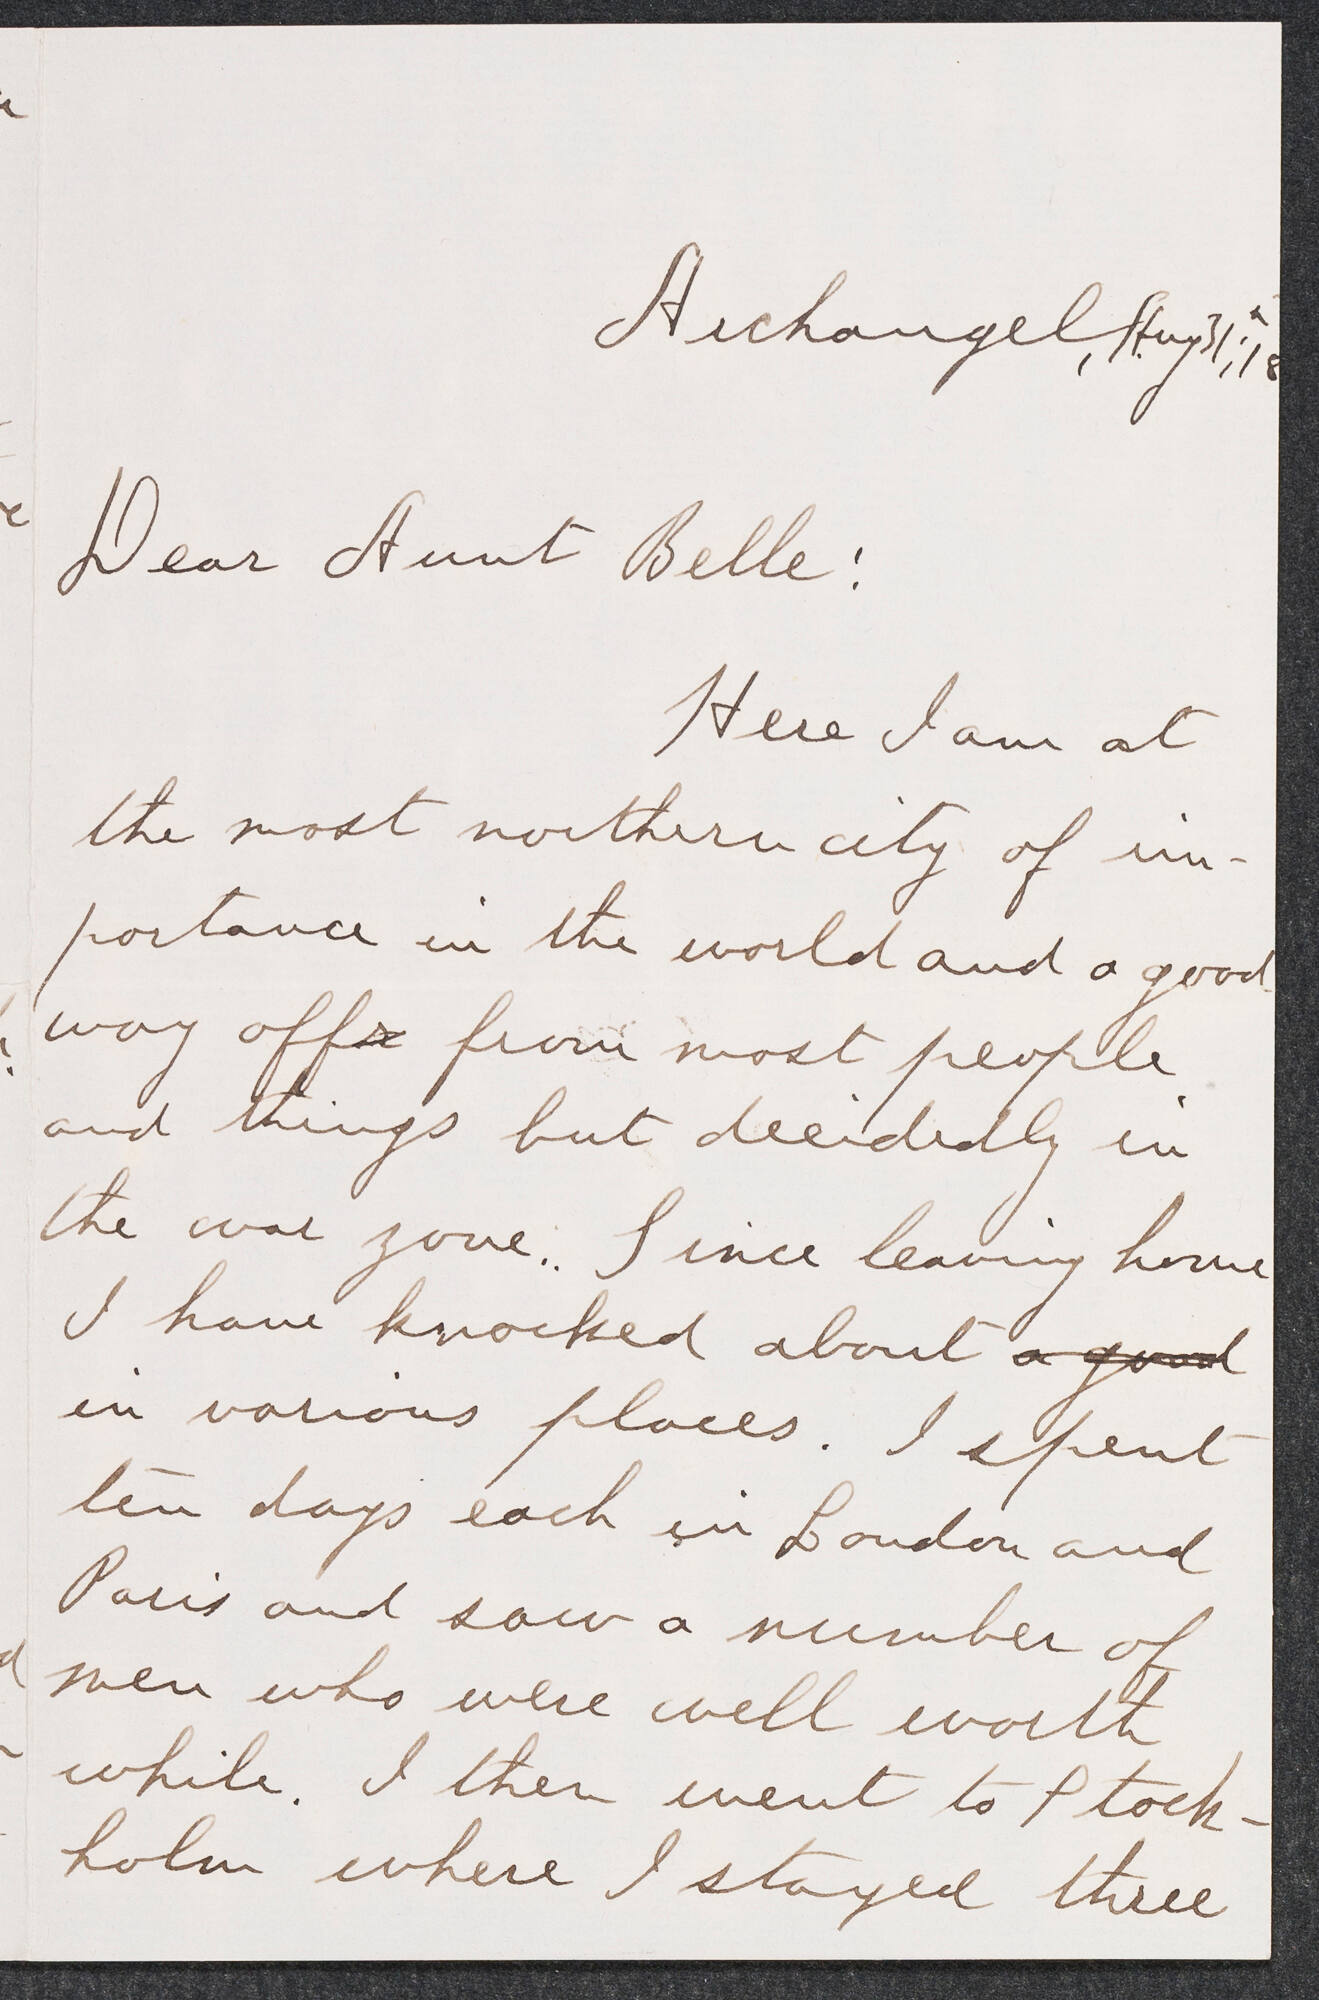 Archangel, Aug 31, '18
Dear Aunt Belle:
Here I am at
the most northern city of im-
portance in the world and a good
way off from most people
and things but decidedly in
the war zone.. Since leaving home
I have knocked about a good
in various places. I spent
ten days each in London and
Paris and saw a number of
men who were well worth
while. I then went to Stock-
holm where I stayed three